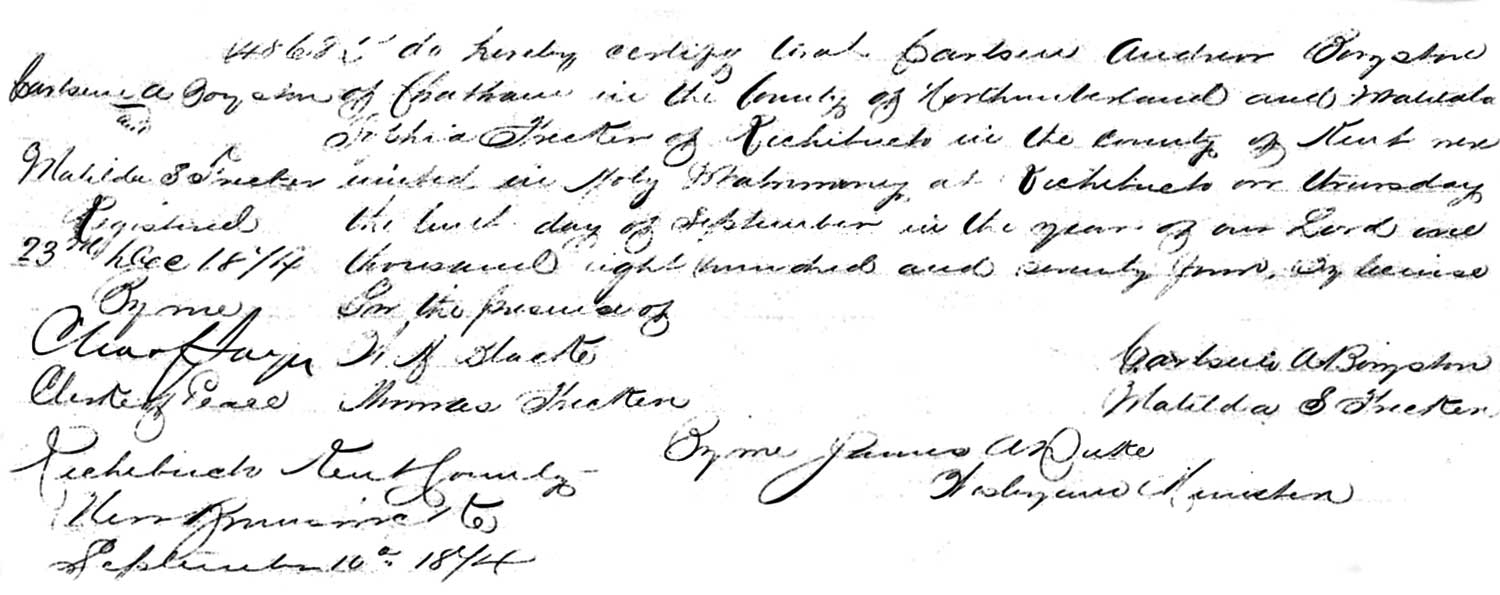 4868 I do hereby certify that Carlsen Andrew Boyston
Carlsen A Boyston of Chatham in the County of Northumberland and Matilda
and
Sophia Tricker of Richibucto in the County of Kent were
Matilda S Tricker united in Holy Matrimony at Richibucto on Thursday
Registered the tenth day of September in the year of our Lord one
23rd Dec 1874 thousand eight hundred and seventy four. By license
By me In the presence of
W H
Clerk of Peace Thomas Tricker
Carlsen A Boyston
Matilda S Tricker
By me James A Duke
Wesleyan Minister
Richibucto Kent County
New Brunswick
September 10th 1874